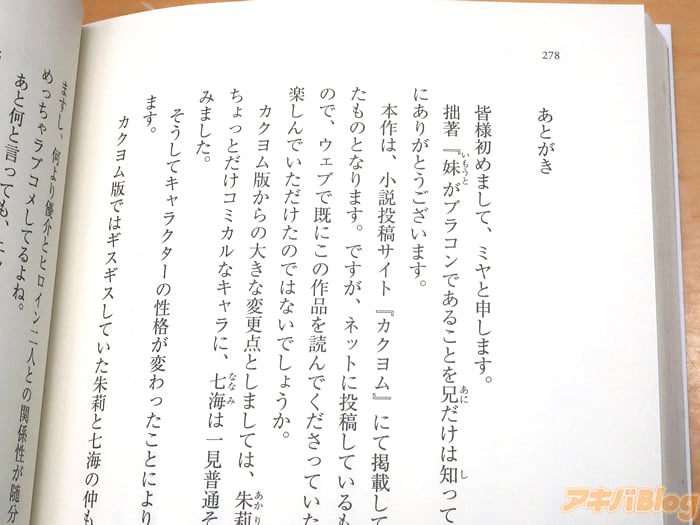 278
あとがき
皆様初めまして、ミヤと申します。
拙著『妹がブラコンであることを兄だけは知って
にありがとうございます。
本作は、小説投稿サイト『カクヨム』にて掲載して
たものとなります。ですが、ネットに投稿しているも
ので、ウェブで既にこの作品を読んでくださっていた
楽しんでいただけたのではないでしょうか。
カクヨム版からの大きな変更点としましては、朱莉
ちょっとだけコミカルなキャラに、七海は一見普通そ
みました。
そうしてキャラクターの性格が変わったことにより
ます。
カクヨム版ではギスギスしていた朱莉と七海の仲も
ますし、何より優介とヒロイン二人との関係性が随分
めっちゃラブコメしてるよね。
あと何と言っても、
アキバBlog